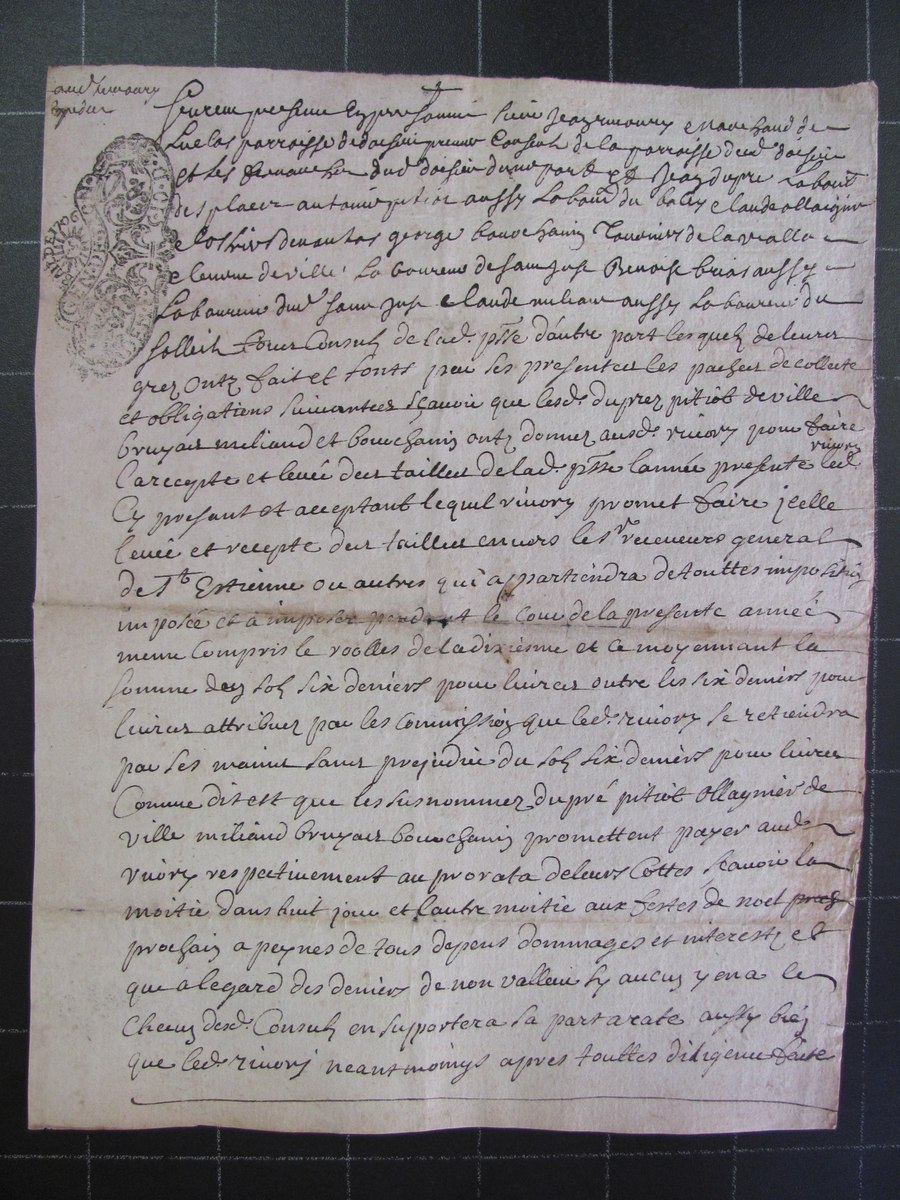 furent presens en personne sieur Jean rivory marchand de
parroisse de doisieu premier Consul de la parroisse dud. doisieu
et les dud. doisieu d'une part et Jean dupre Labour.
des places antoine pitiot aussy Labour. du Claude ollaignier
george bouchanin de la vialla
Clemens deville Laboureur de saint Just Benoist briat aussy
Laboureur dud. saint Just Claude miliand aussy Laboureur du
Solleil tous Consulz de lad. psse d'autre part lesquelz de leurs
grez ontz fait et fonts par ses presentes les paches de collecte
et obligations suivantes sçavoir que lesd. duprez pitiot deville
bruyas miliand et bouchanin ontz donnez aud. rivory pour faire
la recepte et levée des tailles de lad. psse l'année presente led. rivory
Cy present et acceptant lequel rivory promet faire jcelle
levée et recepte des tailles envers le sr receveurs general
de St Estienne ou autres qui appartiendra de touttes impositions
imposée et à imposer pendant le cour de la presente année
meme Compris le roolles de la dixiesme et ce moyennant la
somme d'un sol six deniers pour livres outre les six deniers pour
livres attribuez par les Commission que led. rivory se retiendra
par ses mains sans prejudice du sol six deniers pour livres
Comme dit est que les susnommez dupré pitiot ollagnier de
ville miliand bruyas bouchanin promettent payer aud.
rivory respectivement au prorata de leurs Cottes sçavoir la
moitié dans huit jour et l'autre moitié aux festes de noel
prochain a peynes de tous depens dommages et interestz et
que a legard des deniers de non valleur sy aucun y en a le
Chacun desd. Consulz en supportera sa part a rate aussy bien
que led. rivory neantmoings apres touttes diligence faite